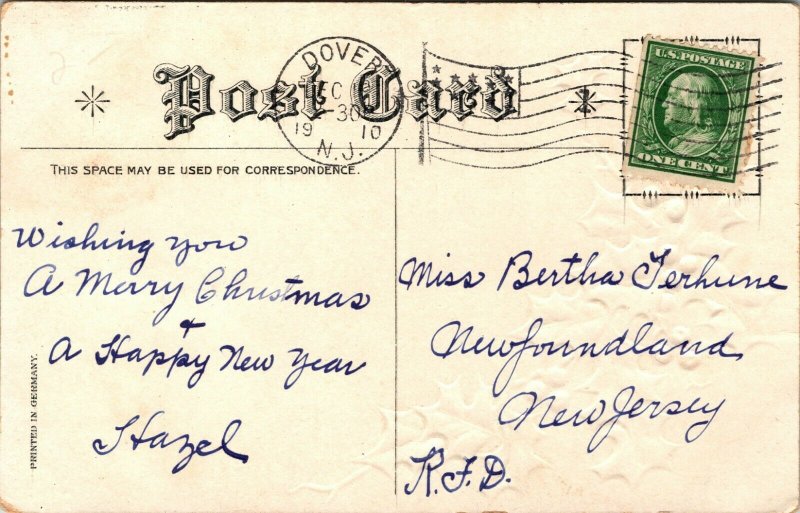 Post Card
DOVER
DEC
30
19 10
N.J.
U.S. POSTAGE
ONE CENT
THIS SPACE MAY BE USED FOR CORRESPONDENCE.
Wishing you
A Merry Christmas
+
A Happy New Year
Hazel
Miss Bertha Terhune
Newfoundland
New Jersey
R.F.D.
PRINTED IN GERMANY.